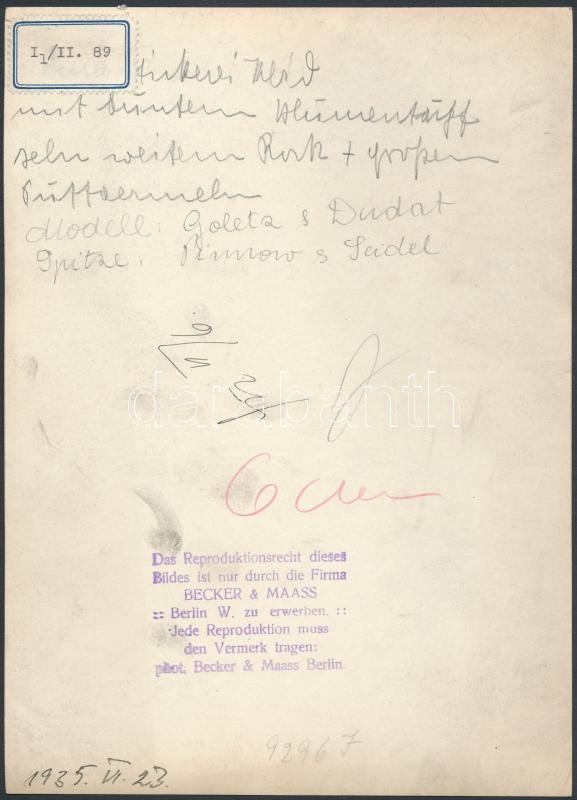 I1/II. 89
Stickerei Kleid
mit buntem Blumentuff
sehr weitem Rock + großen
Puffaermeln
Modell: Goletz & Dudat
Spitze: Rinnow & Seidel
darabanth
6 cm
Das Reproduktionsrecht dieses
Bildes ist nur durch die Firma
BECKER & MAASS
:: Berlin W. zu erwerben. ::
Jede Reproduktion muss
den Vermerk tragen:
phot. Becker & Maass Berlin.
9296 F
1935. VI. 23.